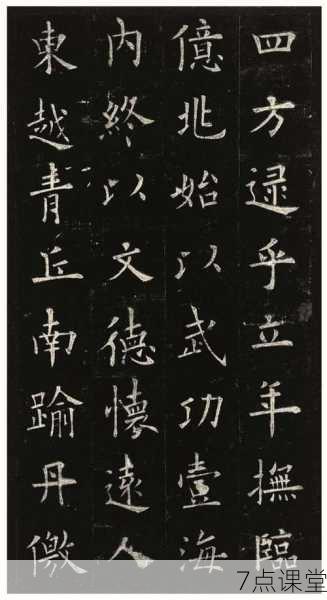 四方逯乎立年撫臨
億兆始以武功壹海
内終以文德懷遠人
東越青丘南踰丹儌
7点课堂